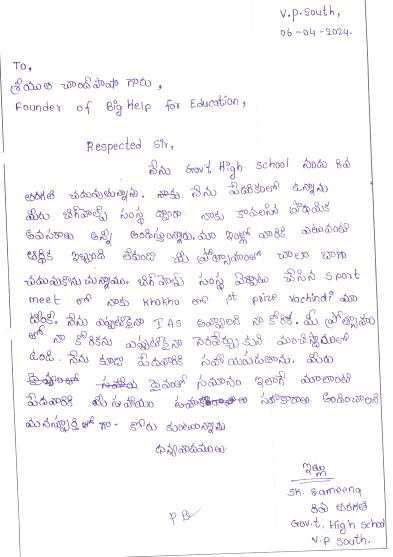 V.P. South,
06-04-2024.
To,
శ్రీయుత చాంద్‌పాషా గారు,
Founder of Big Help for Education,
Respected Sir,
నేను Govt High School నందు 8వ
తరగతి చదువుతున్నాను. నాకు నేను పేదరికంలో ఉన్నాను
మీరు బిగ్‌హెల్ప్ సంస్థ ద్వారా నాకు కావలసిన ప్రాథమిక
అవసరాలు అన్ని అందిస్తున్నారు. మా ఇంట్లో వారికి ఎటువంటి
ఆర్థిక ఇబ్బంది లేకుండా మీ ప్రోత్సాహంతో చాలా బాగా
చదువుకొనుచున్నాము. బిగ్‌హెల్ప్ సంస్థ ఏర్పాటు చేసిన Sport
meet లో నాకు Khokho లో 1st prize vachindi మా
నేను ఎప్పటికైనా IAS అవ్వాలని నా కోరిక. మీ ప్రోత్సాహం
తో నా కోరికను ఎప్పటికైనా నెరవేర్చుకుని మంచిస్థాయిలో
ఉండి నేను కూడా పేదవారికి సహాయపడుతాను. మీరు
సమానం ఇలాగే మాలాంటి
పేదవారికి మీ సహాయం సహకారాలు అందించాలని
మనస్ఫూర్తిగా కోరుకుంటున్నాను
ధన్యవాదములు
ఇట్లు
SK. Sameena
8వ తరగతి
Govt. High School
V.P South.